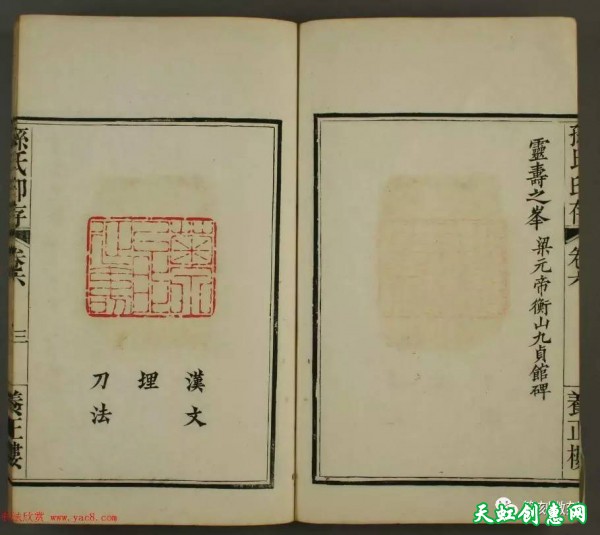 孫氏印存 卷六 養正樓
靈壽之峯 梁元帝衡山九貞館碑
漢文
埋
刀法
孫氏印存 卷六 三 養正樓
法欣赏 www.yac8.com
天虹创意网